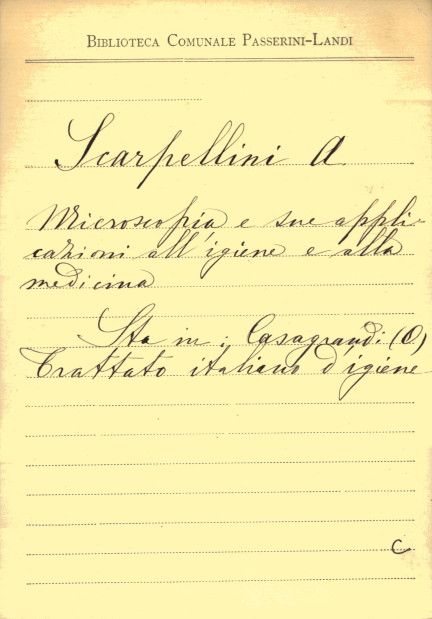 BIBLIOTECA COMUNALE PASSERINI-LANDI
Scarpellini A
Microscopia e sue appli-
cazioni all'igiene e alla
medicina
Sta in: Casagrandi (O)
Trattato italiano d'igiene
C